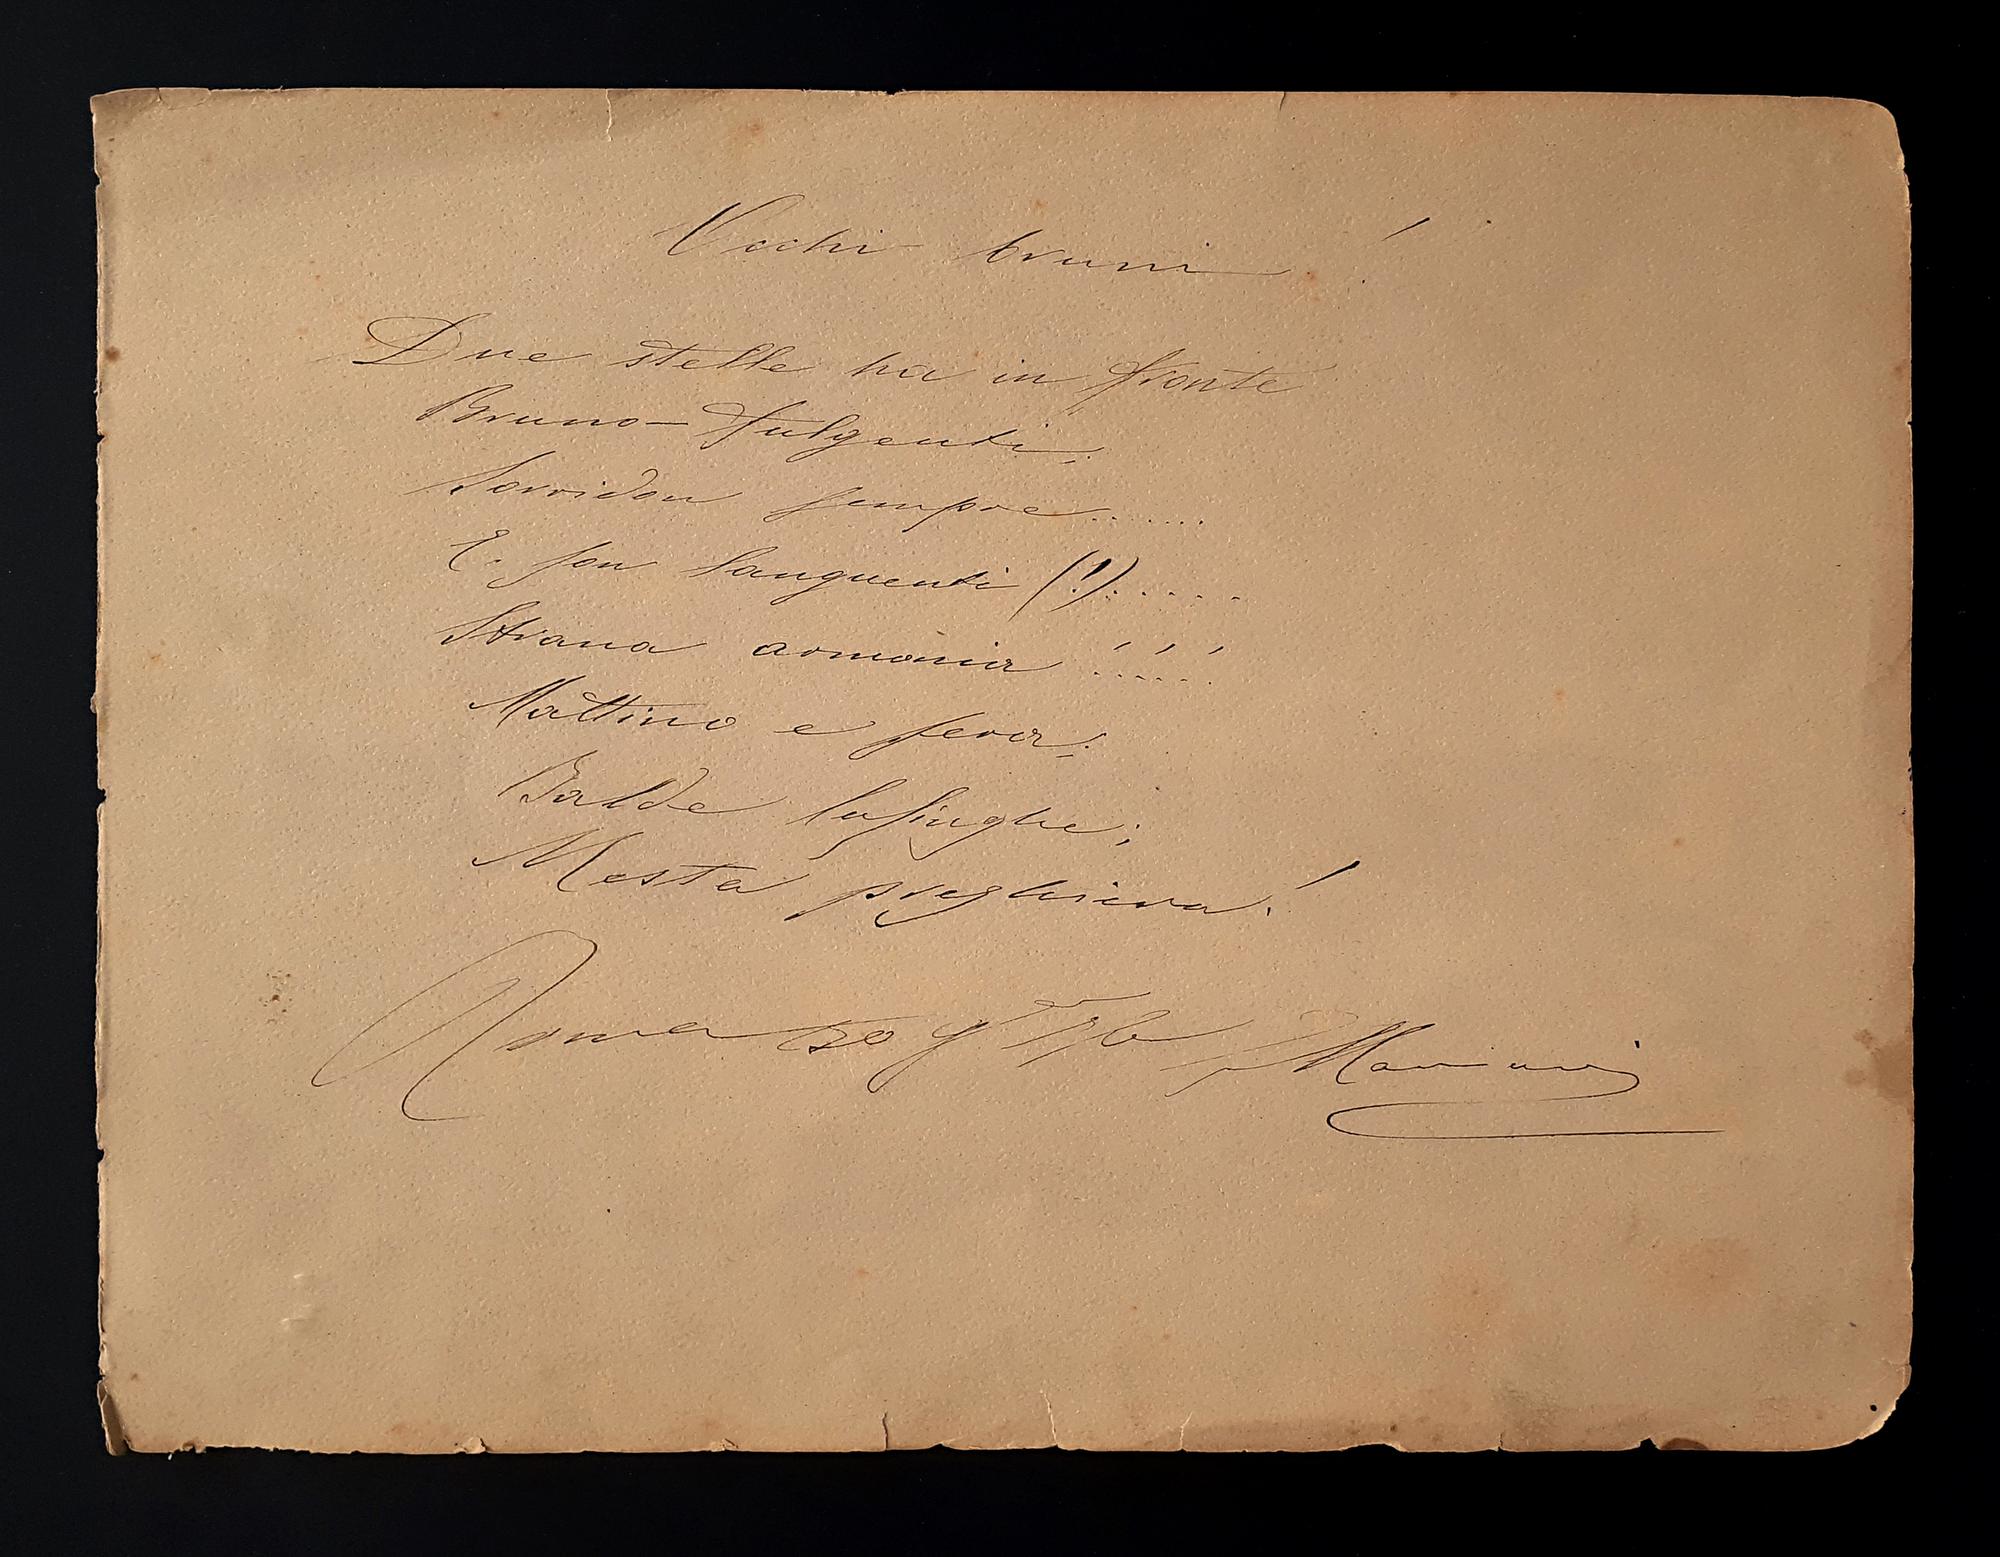 Occhi bruni!
Due stelle ha in fronte
Bruno-fulgenti;
Sorridon sempre......
E son languenti (!).....
Strana armonia !.!.!
Mattino e sera;
Balde lusinghe;
Mesta preghiera!
Roma 30 Mariani